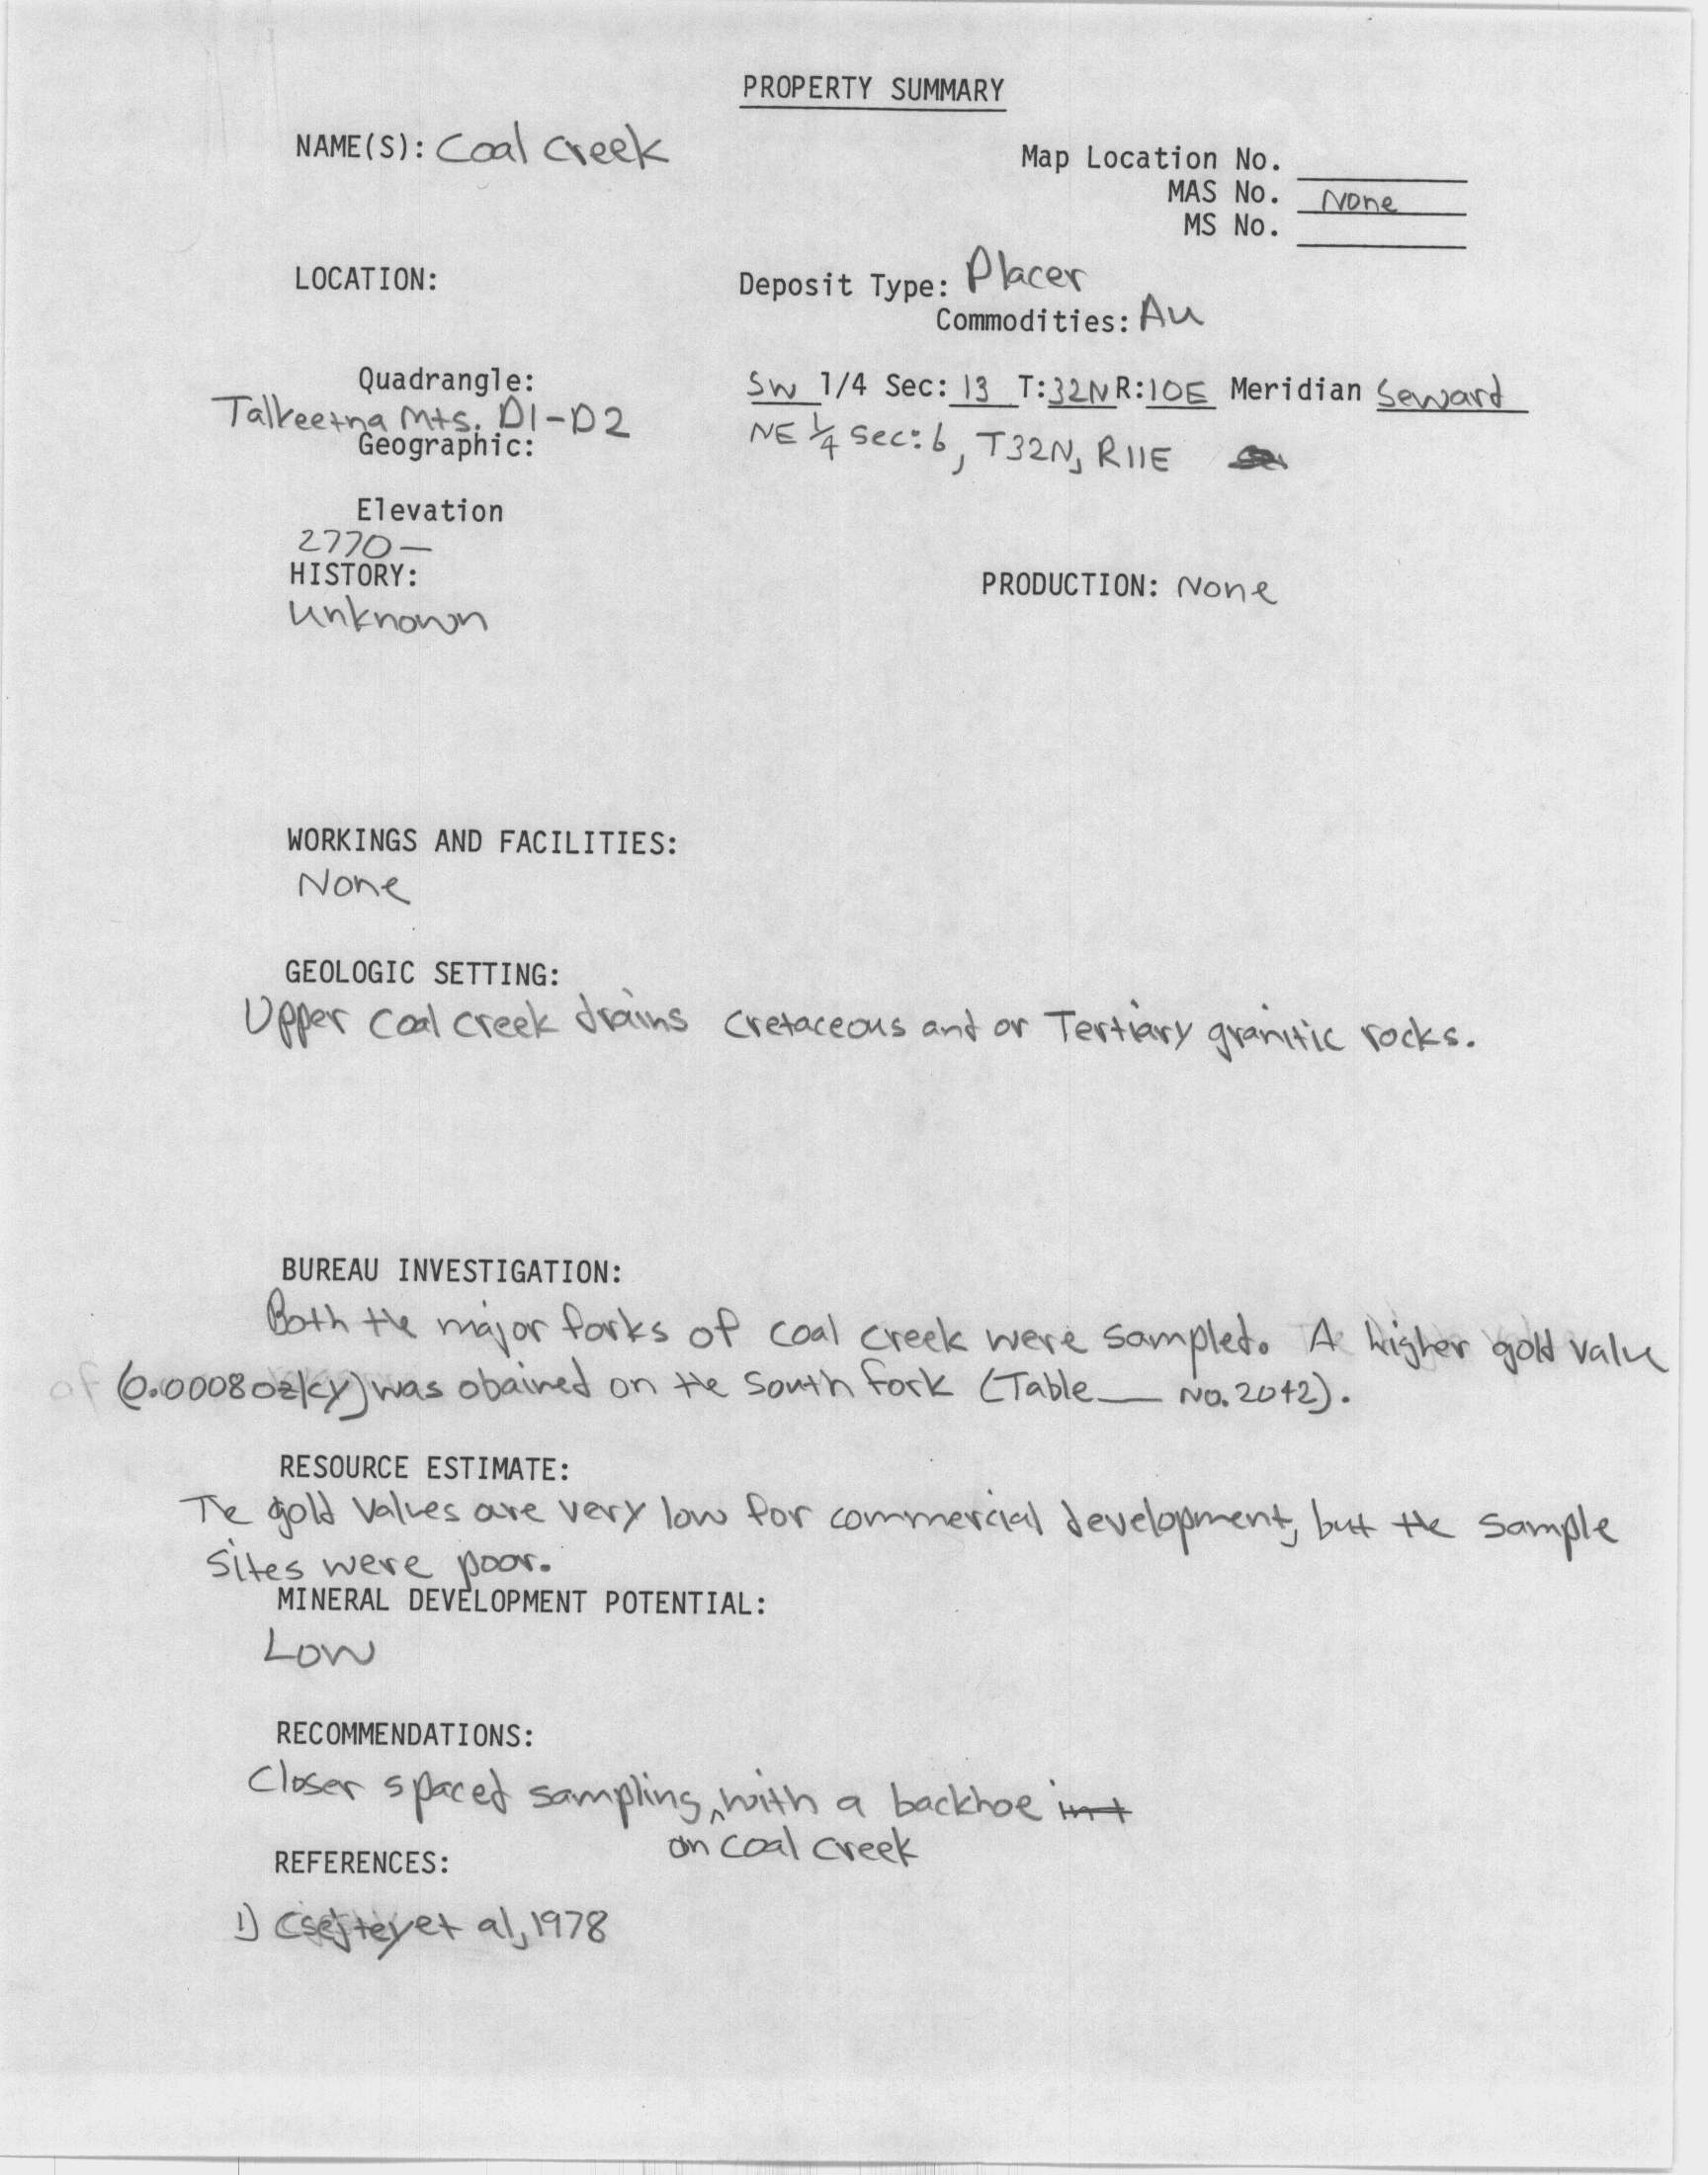 PROPERTY SUMMARY
NAME(S): Coal Creek
Map Location No.
MAS No. None
MS No.
LOCATION:
Deposit Type: Placer
Commodities: Au
Quadrangle:
Talkeetna Mts. D1-D2
SW 1/4 Sec: 13 T:32N R:10E Meridian Seward
NE 1/4 Sec: 6, T32N, R11E
Geographic:
Elevation
2770—
HISTORY:
Unknown
PRODUCTION: None
WORKINGS AND FACILITIES:
None
GEOLOGIC SETTING:
Upper Coal Creek drains Cretaceous and or Tertiary granitic rocks.
BUREAU INVESTIGATION:
Both the major forks of Coal Creek were sampled. A higher gold value
(0.0008 oz/cy) was obained on the South fork (Table___ No. 2042).
RESOURCE ESTIMATE:
The gold values are very low for commercial development, but the sample
sites were poor.
MINERAL DEVELOPMENT POTENTIAL:
Low
RECOMMENDATIONS:
Closer spaced sampling ^ with a backhoe int
on Coal Creek
REFERENCES:
1) Csejtey et al, 1978